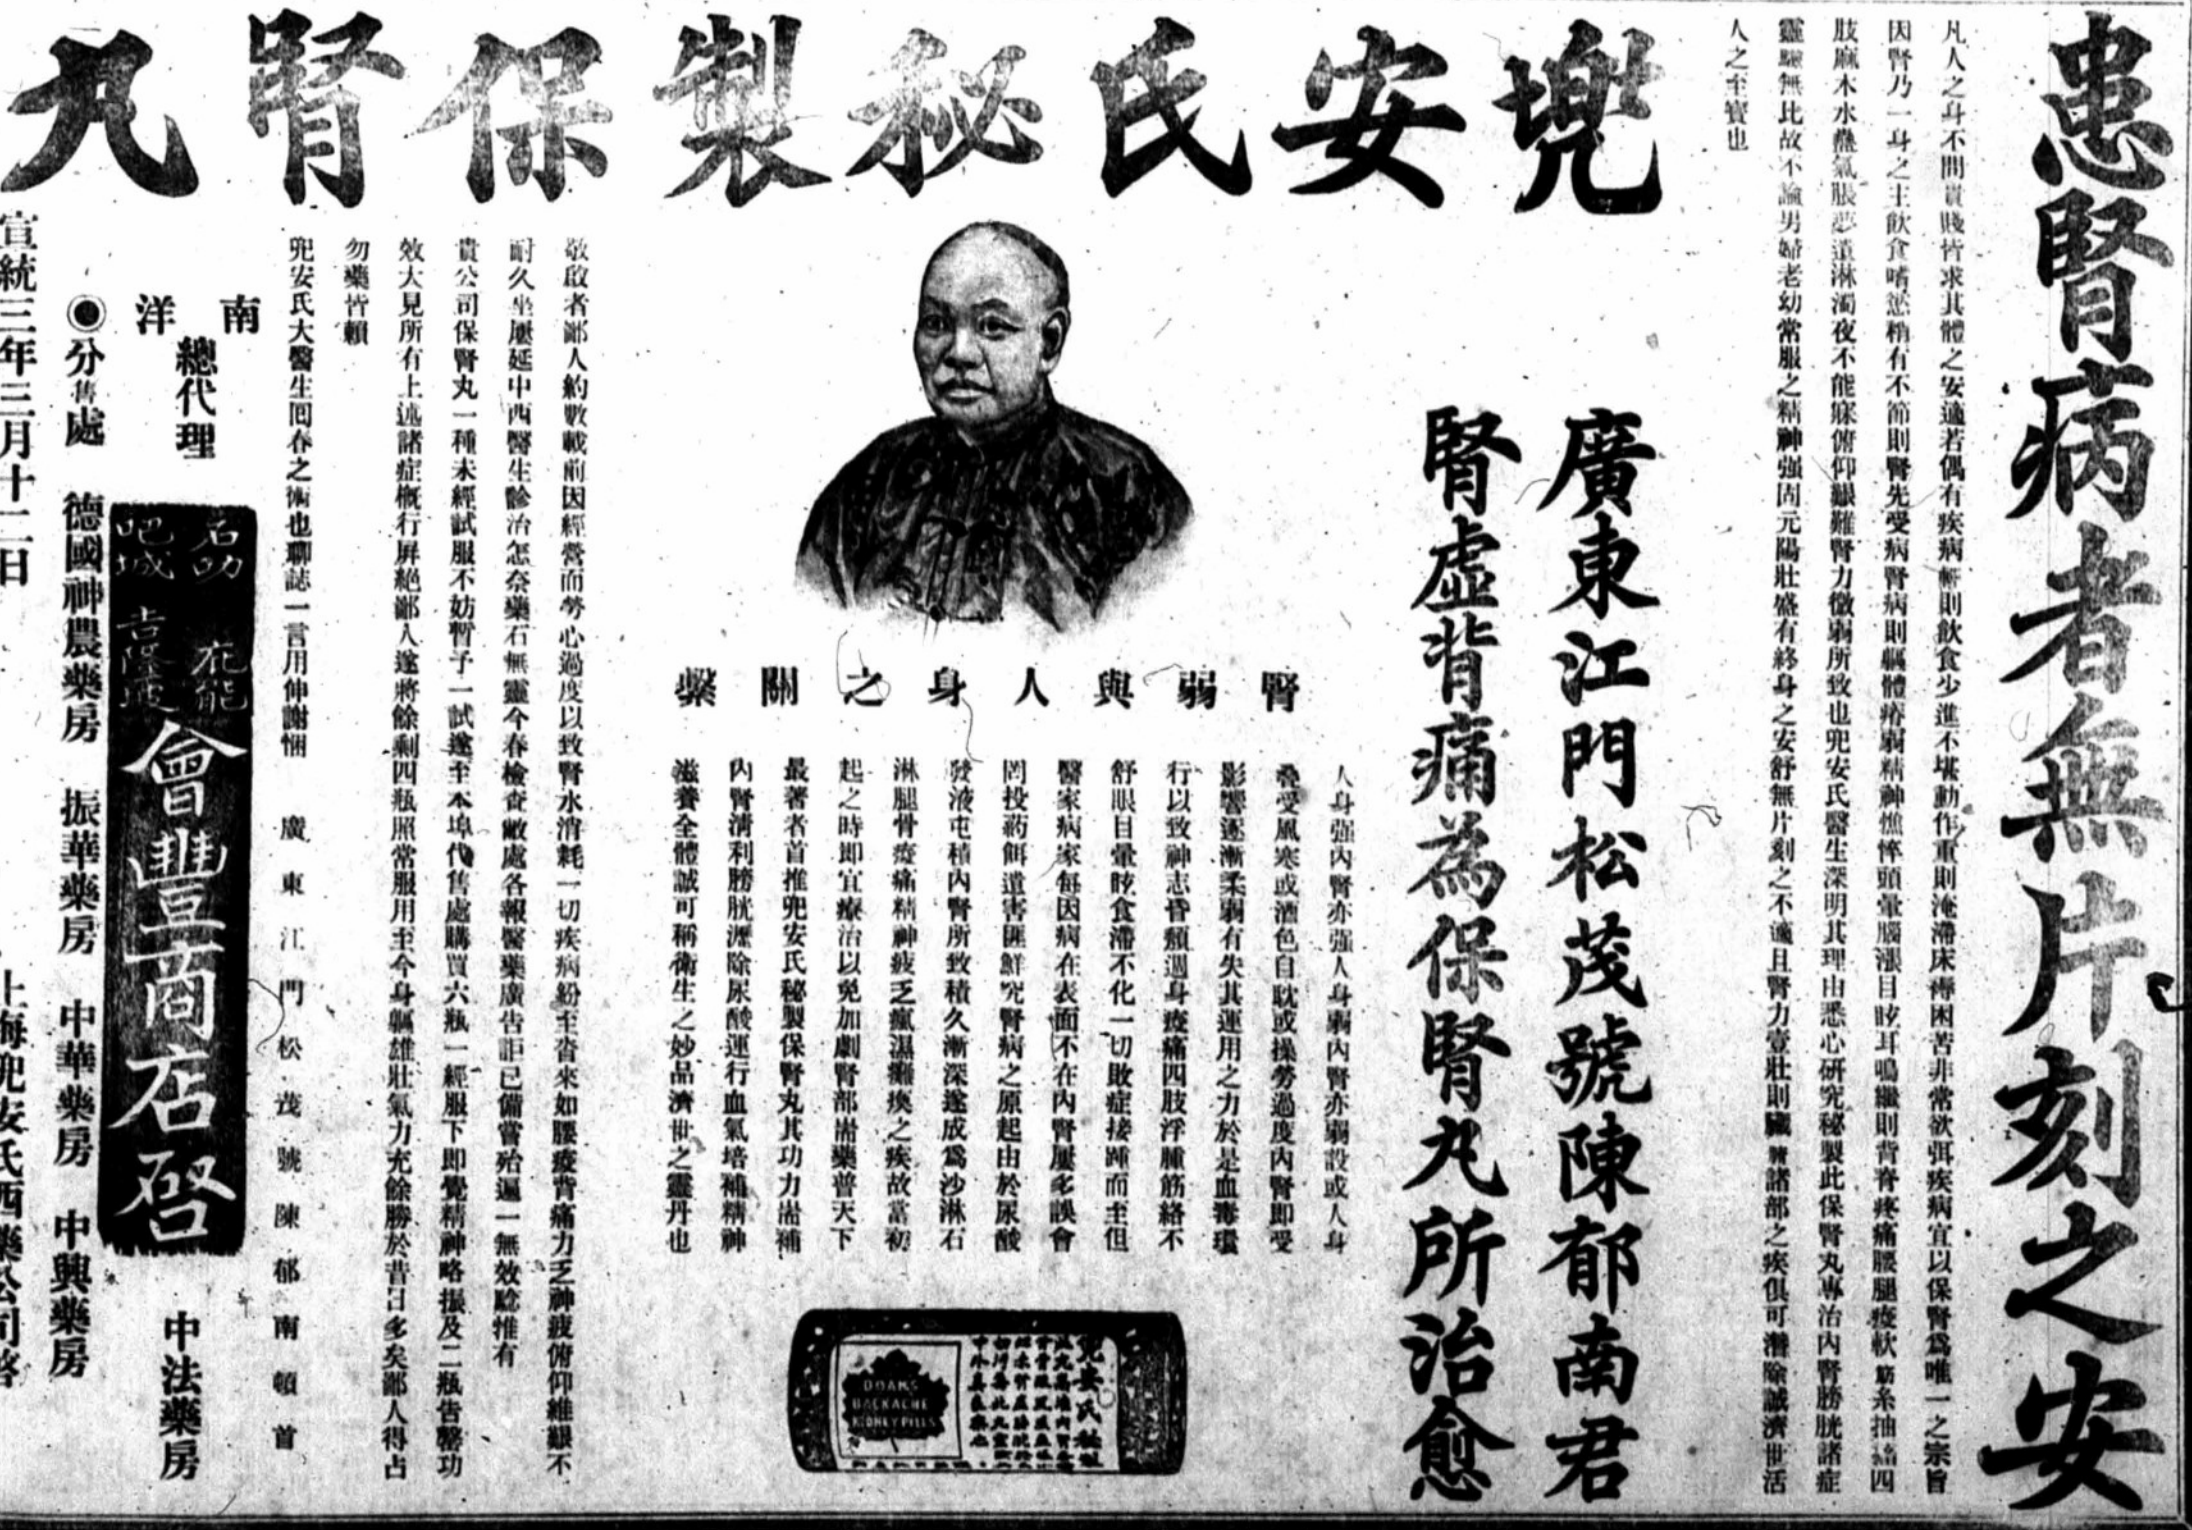 患腎病者無片刻之安
凡人之身不問貴賤皆求其體之安適若偶有疾病輕則飲食少進不堪動作重則淹滯床褥困苦非常欲弭疾病宜以保腎爲唯一之宗旨
因腎乃一身之主飲食嗜慾稍有不節則腎先受病腎病則軀體瘠弱精神憔悴頭暈腦漲目眩耳鳴繼則背脊疼痛腰腿痠軟筋系抽搐四
肢麻木水蠱氣脹夢遺淋濁夜不能寐俯仰艱難腎力微弱所致也兜安氏醫生深明其理由悉心研究秘製此保腎丸專治內腎膀胱諸症
靈驗無比故不論男婦老幼常服之精神强固元陽壯盛有終身之安舒無片刻之不適且腎力壹壯則臟腑諸部之疾俱可潛除誠濟世活
人之至寶也
兜安氏秘製保腎丸
廣東江門松茂號陳郁南君
腎虛背痛為保腎丸所治愈
腎弱與人身之關繫
人身强內腎亦强人身弱內腎亦弱設或人身
受風寒或酒色自耽或操勞過度內腎即受
影響逐漸柔弱有失其運用之力於是血毒環
行以致神志昏頹週身痠痛四肢浮腫筋絡不
舒眼目暈眩食滯不化一切敗症接踵而至但
醫家病家每因病在表面不在內腎屢多誤會
罔投葯餌遺害匪鮮究腎病之原起由於尿酸
發液屯積內腎所致積久漸深遂成爲沙淋石
淋腿骨痠痛精神疲乏瘋濕癱瘓之疾故當初
起之時即宜療治以免加劇腎部耑藥普天下
最著者首推兜安氏秘製保腎丸其功力耑補
內腎清利膀胱瀝除尿酸運行血氣培補精神
滋養全體誠可稱衛生之妙品濟世之靈丹也
兜安氏秘製
DOAN'S
BACKACHE
KIDNEY PILLS
敬啟者鄙人約數載前因經營而勞心過度以致腎水消耗一切疾病紛至沓來如腰痠背痛力乏神疲俯仰維艱不
耐久坐屢延中西醫生診治怎奈藥石無靈今春檢查敝處各報醫藥廣告詎已備嘗殆遍一無效驗惟有
貴公司保腎丸一種未經試服不妨暫予一試遂至本埠代售處購買六瓶一經服下即覺精神略振及二瓶告罄功
效大見所有上述諸症概行屏絕鄙人遂將餘剩四瓶照常服用至今身軀雄壯氣力充餘勝於昔日多矣鄙人得占
勿藥皆賴
兜安氏大醫生囘春之術也聊誌一言用伸謝悃　廣東江門松茂號陳郁南頓首
南洋總代理
石叻
吧城
庇能
吉隆坡
會豐商店啓
中法藥房
◉分售處　德國神農藥房　振華藥房　中華藥房　中興藥房
宣統三年三月十二日　上海兜安氏西藥公司啓